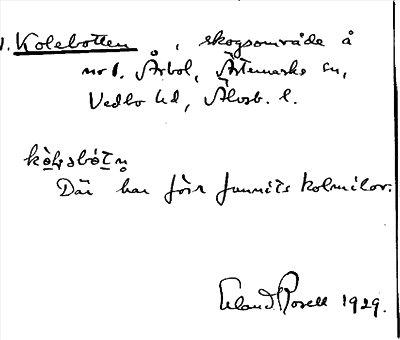 1. Kolebotten, skogsområde å
no 1. Årbol, Ärtemarks sn,
Vedbo hd, Älvsb. l.
kò̀l̥əbót n̥
Där har förr funnits kolmilor.
Erland Rosell 1929.